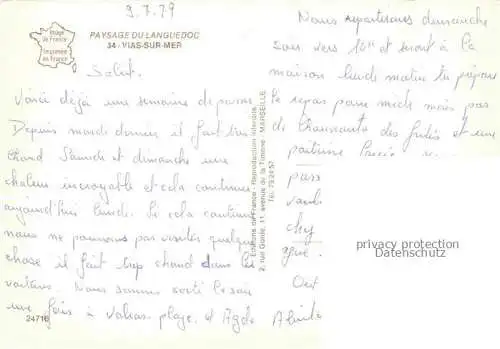 9.7.79
Image de France
Imprimée en France
PAYSAGE DU LANGUEDOC
34 - VIAS-SUR-MER
Salut.
Voici déjà une semaine de passée
Depuis mardi dernier il fait très
chaud Samedi et dimanche une
chaleur incroyable et cela continue
aujourd'hui lundi. Si cela continue
nous ne pourrons pas visiter quelque
chose il fait trop chaud dans les
voitures. Nous sommes sorti le soir
une fois à Valras plage. et Agde
24716
Editions de France - Reproduction interdite
2, rue Goride, 11, avenue de la Timone - MARSEILLE
Tél. 79.29.57
Nous repartirons dimanche
soir vers 10H et seront à la
maison lundi matin tu prépares
le repas pour midi mais pas
de choucroute des frites et une
pass
vou
chez
que
privacy protection
Datenschutz